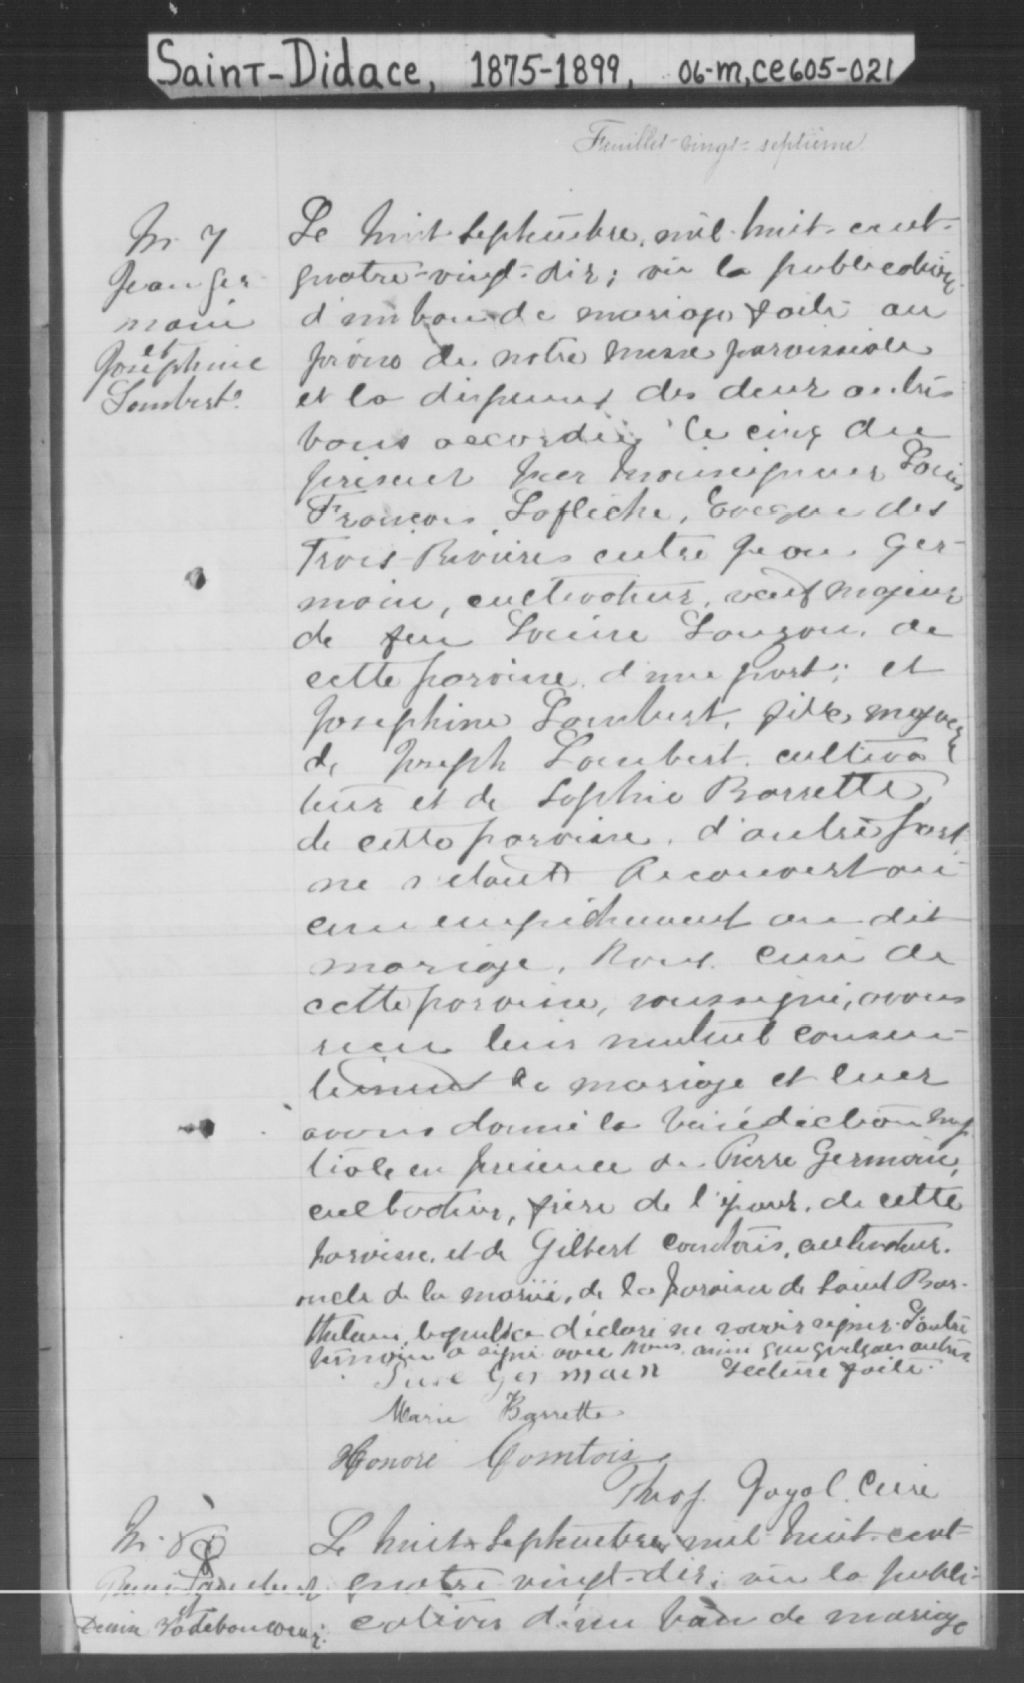 Saint-Didace, 1875-1899, 06-M,CE605-021
Feuillet vingt-septième
M. 7
Jean Ger-
main
et
Josephine
Lambert
Le huit Septembre, mil-huit-cent-
quatre-vingt-dix; vu la publication
d'un ban de mariage faite au
prône de notre messe paroissiale
et la dispense des deux autres
bans accordée le cinq du
présent par Monseigneur Louis
François Laflèche, Evêque des
Trois-Rivières entre Jean Ger-
main, cultivateur, veuf majeur
de feu Louise Lauzon, de
cette paroisse, d'une part; et
Josephine Lambert, fille majeure
de Joseph Lambert, cultiva
teur et de Sophie Barrette,
de cette paroisse, d'autre part
ne s'étant découvert au-
cun empêchement au dit
mariage, Nous, curé de
cette paroisse, soussigné, avons
reçu leur mutuel consen-
tement de mariage et leur
avons donné la bénédiction nup
tiale en présence de Pierre Germain,
cultivateur, frère de l'époux, de cette
paroisse, et de Gilbert Comtois, cultivateur,
oncle de la mariée, de la paroisse de Saint Bar-
thélemi, lequel a déclaré ne savoir signer. L'autre
témoin a signé avec nous ainsi que quelques autres
Germain Lecture faite.
Marie Barrette
Honoré Comtois
Gagnol. Curé
M. 8
Lambert
et
Ladebauche
Le huit Septembre, mil huit-cent-
quatre-vingt-dix; vu la publi-
cation d'un ban de mariage